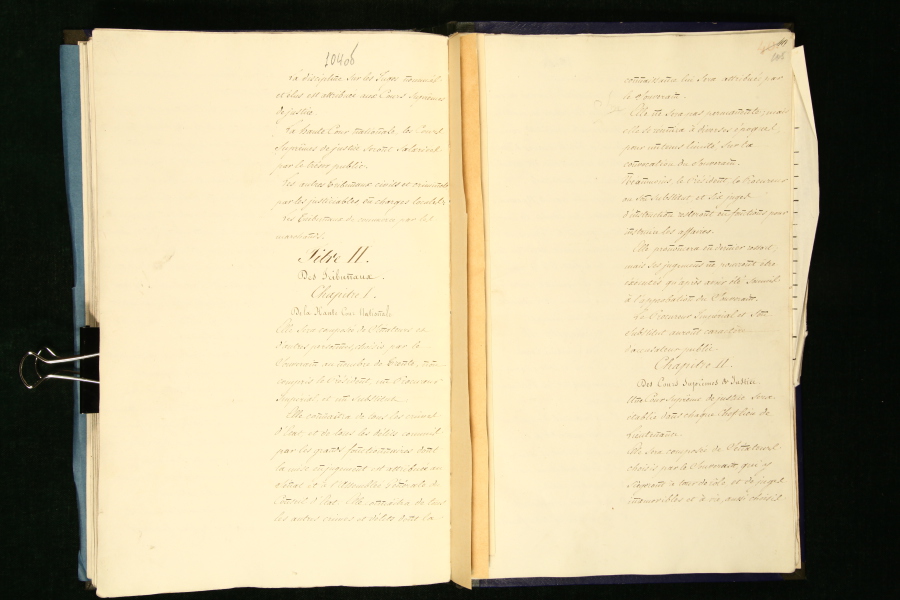 10406
La discipline sur les Juges
et elus est attribuée aux Cours Suprêmes
de justice.
La haute Cour nationale, les Cours
Suprêmes de justice seront Salariées
par le trésor public.
Les autres tribunaux civils et criminels
par les justiciables en charges locales;
les tribunaux de commerce par les
marchands.
Titre II.
Des Tribunaux.
Chapitre I.
De la Haute Cour Nationale
Elle sera composée de Sénateurs en
d'autres personnes choisis par le
Souverain au nombre de trente, non
compris le Président, un Procureur
Impérial et un Substitut.
Elle connaîtra de tous les crimes
d'Etat, et de tous les délits commis
par les grands fonctionnaires dont
la mise en jugement est attribuée au
Sénat et à l'Assemblée générale du
Conseil d'Etat. Elle connaîtra de tous
les autres crimes et délits dont la
connaissance lui sera attribuée par
le Souverain.
Elle ne sera pas permanente; mais
elle se réunira à diverses époques
pour un tems limité, sur la
convocation du Souverain.
Néanmoins le Président, le Procureur
ou son Substitut, et six juges
d'instruction resteront en fonctions pour
instruire les affaires.
Elle prononcera en dernier ressort,
mais ses jugemens ne pourront être
exécutés qu'après avoir été soumis
à l'approbation du Souverain.
Le Procureur Impérial et son
Substitut auront caractère
d'accusateur public.
Chapitre II.
Des Cours Suprêmes de Justice.
Une Cour Suprême de justice sera
établie dans chaque Chef lieu de
Lieutenance.
Elle sera composée de Sénateurs
choisis par le Souverain, qui y
siégeront à tour de rôle et de juges
inamovibles et à vie, aussi choisis